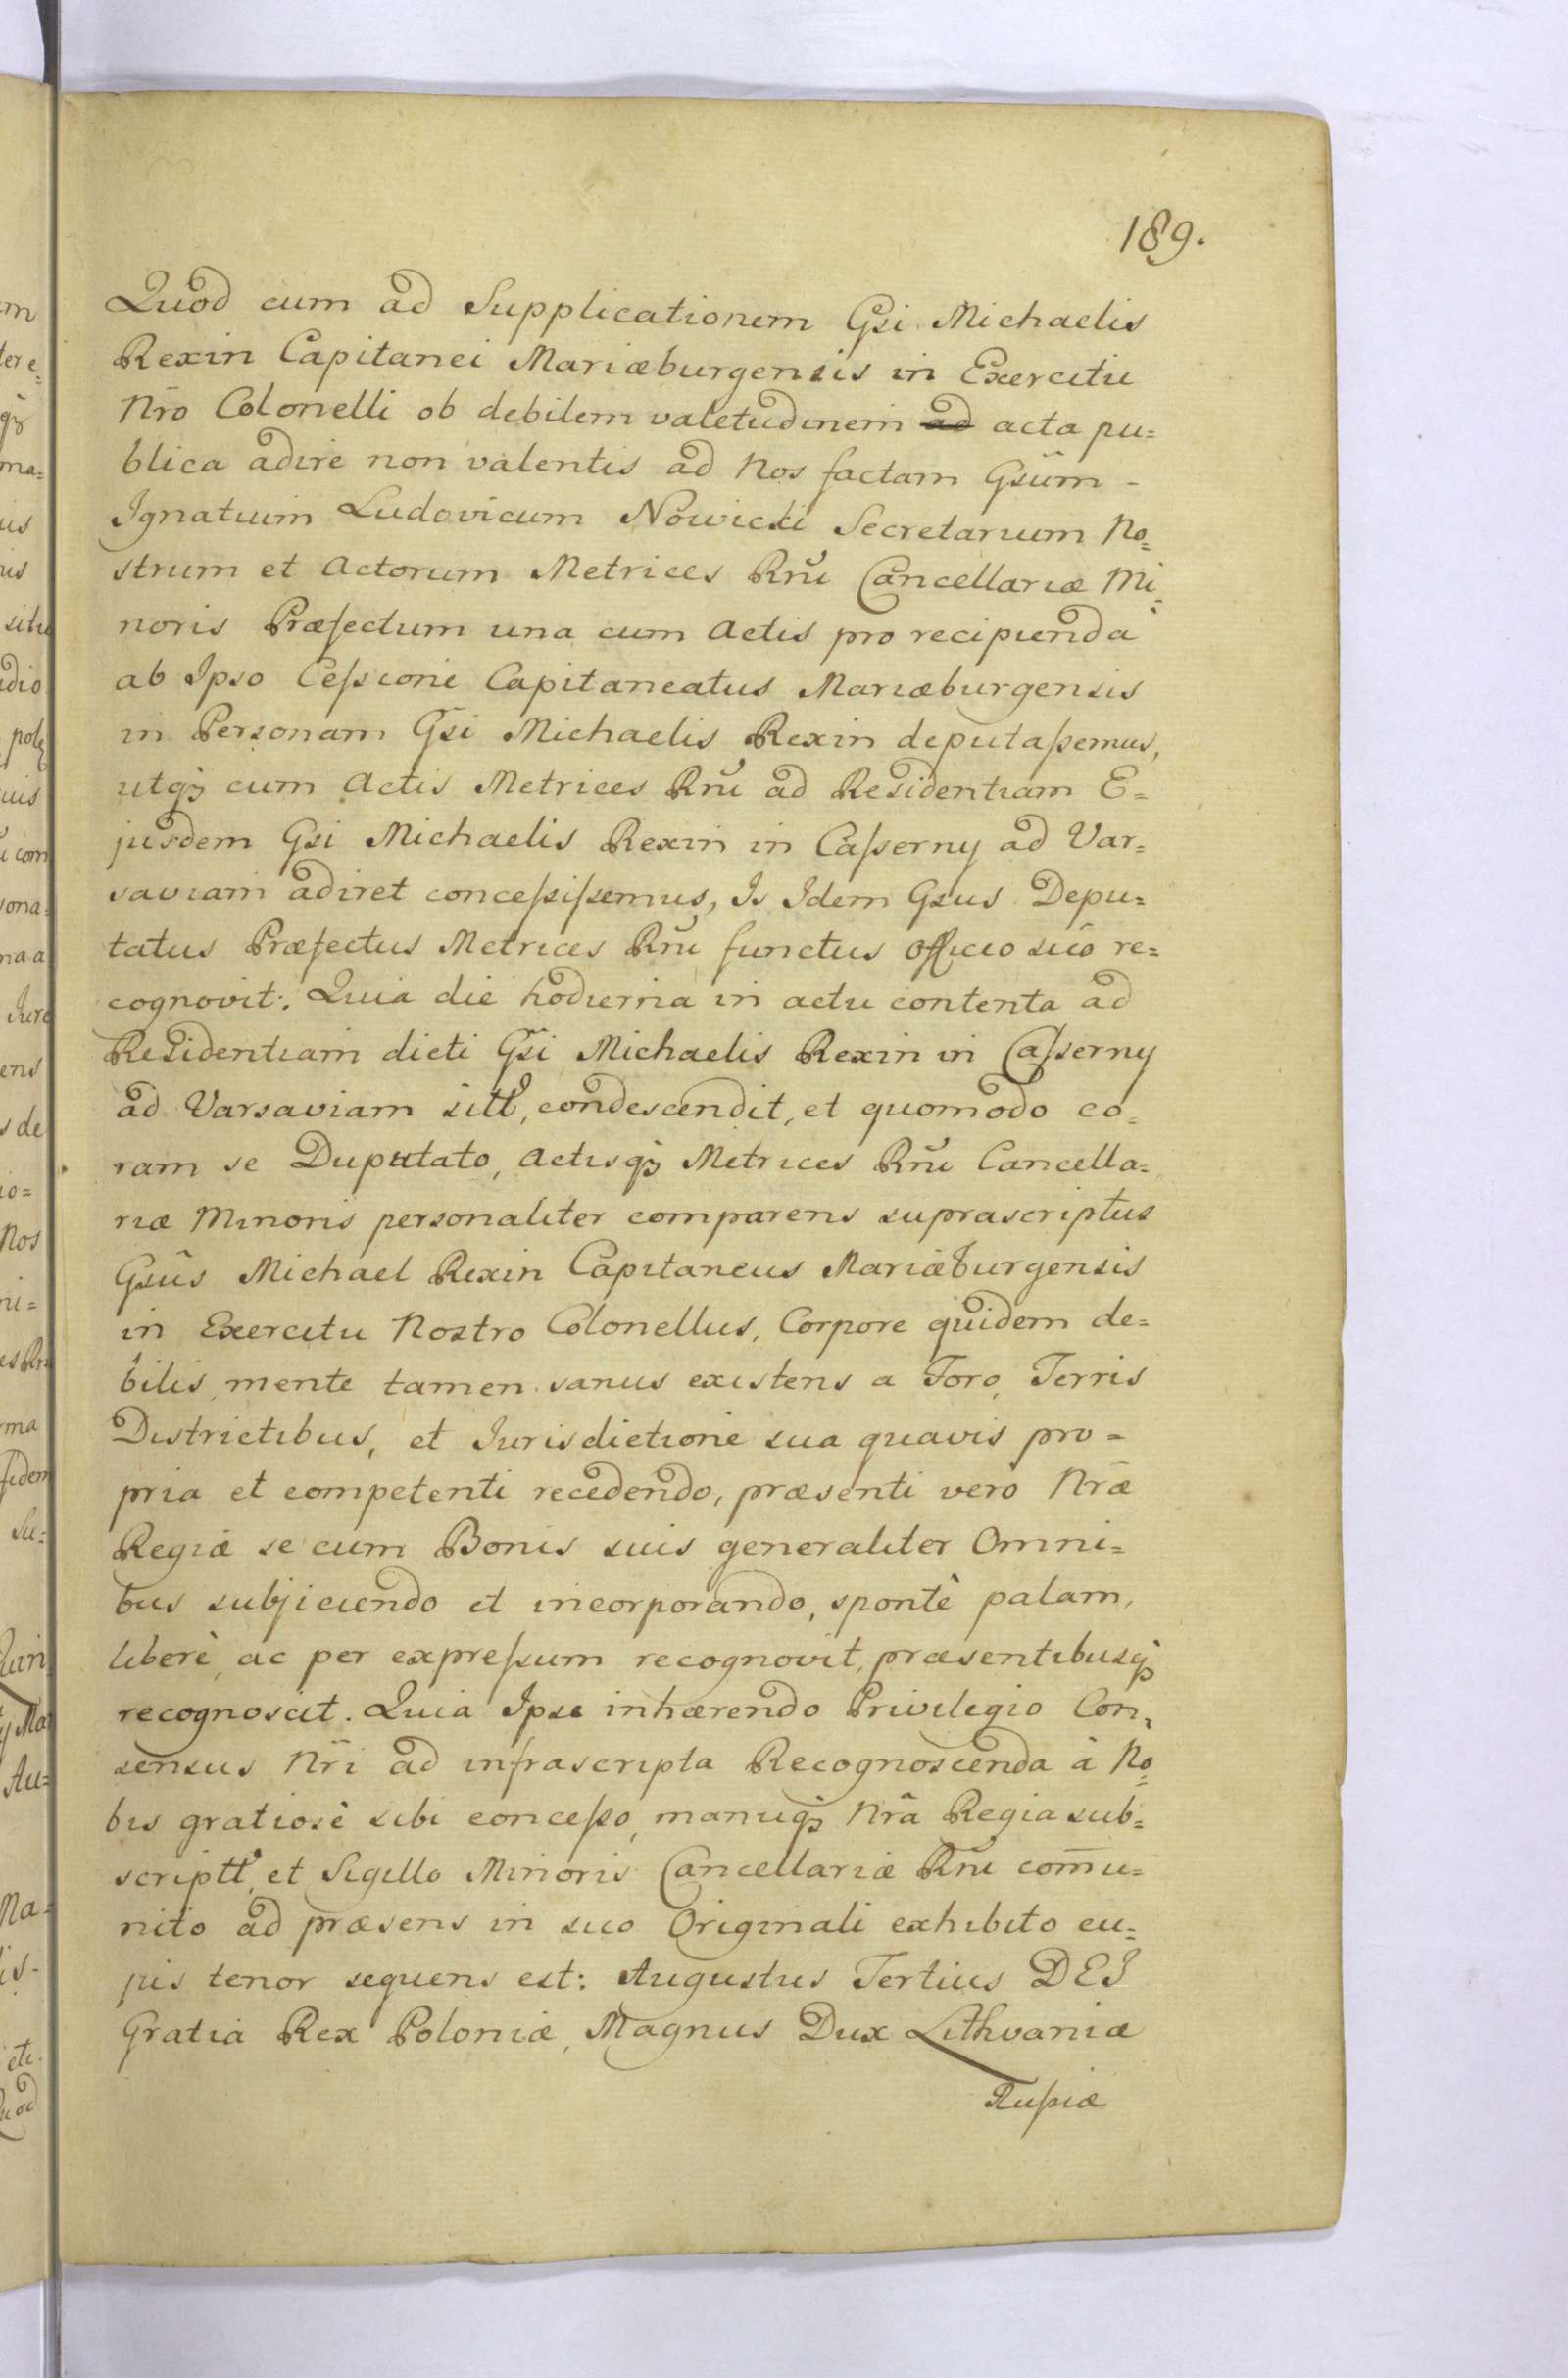 189.
Quod cum ad Supplicationem Gsi Michaelis
Rexin Capitanei Mariæburgensis in Exercitu
Nrō Colonelli ob debilem valetudinem ad acta pu=
blica adire non valentis ad Nos factam Gsūm -
Ignatium Ludovicum Nowicki Secretarium No=
strum et Actorum Metrices Rnū Cancellariæ Mi=
noris Præfectum una cum Actis pro recipienda
ab Ipso Ceſsione Capitaneatus Mariæburgensis
in Personam Gsi Michaelis Rexin deputaſsemus,
utqȝ cum Actis Metrices Rnū ad Residentiam E=
jusdem Gsi Michaelis Rexin in Caſserny ad Var=
saviam adiret conceſsiſsemus, Is Idem Gsus Depu=
tatus Præfectus Metrices Rnū functus officio suo re=
cognovit: Quia die hodierna in actu contenta ad
Residentiam dicti Gsi Michaelis Rexin in Caſserny
ad Varsaviam sitt, condescendit, et quomodo co=
ram se Duputato, Actisqȝ Metrices Rnū Cancella=
riæ Minoris personaliter comparens suprascriptus
Gsūs Michael Rexin Capitaneus Mariæburgensis
in Exercitu Nostro Colonellus, Corpore quidem de=
bilis, mente tamen sanus existens a Foro, Terris
Districtibus, et Iurisdictione sua quavis pro=
pria et competenti recedendo, præsenti vero Nrāe
Regiæ se cum Bonis suis generaliter Omni=
bus subjiciendo et incorporando, spontè palam,
liberè, ac per expreſsum recognovit, præsentibusqȝ
recognoscit. Quia Ipse inhærendo Privilegio Con=
sensus Nrī ad infrascripta Recognoscenda à No=
bis gratiosè sibi conceſso, manuqȝ Nrā Regia sub=
scriptt, et Sigillo Minoris Cancellariæ Rnū com̄u=
nito ad præsens in suo Originali exhibito cu=
jus tenor sequens est: Augustus Tertius DEI
Gratia Rex Poloniæ, Magnus Dux Lithvaniæ
Ruſsiæ